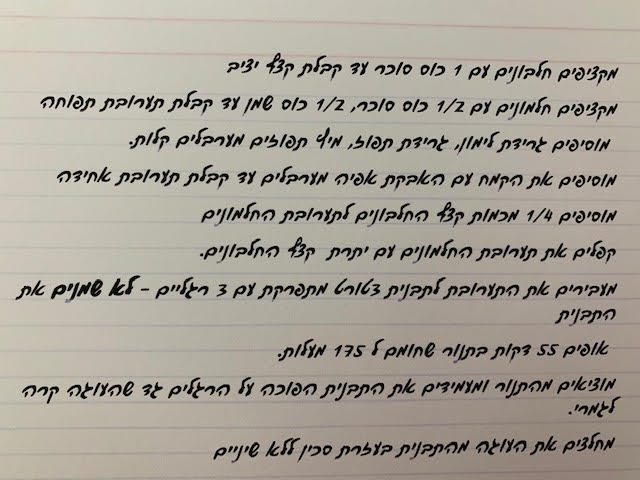 מקציפים חלבונים עם 1 כוס סוכר עד קבלת קצף יציב
מקציפים חלמונים עם 1/2 כוס סוכר, 1/2 כוס שמן עד קבלת תערובת תפוחה
מוסיפים גרידת לימון, גרידת תפוז, מיץ תפוזים מערבלים קלות.
מוסיפים את הקמח עם האבקת אפיה מערבלים עד קבלת תערובת אחידה
מוסיפים 1/4 מכמות קצף החלבונים לתערובת החלמונים
קפלים את תערובת החלמונים עם יתרת קצף החלבונים.
מעבירים את התערובת לתבנית צטורט מתפרקת עם 3 רגליים - לא שמנים את
התבנית
אופים 55 דקות בתנור שחומם ל 175 מעלות.
מוציאים מהתנור ומעמידים את התבנית הפוכה על הרגלים גד שהעוגה קרה
לגמרי.
מחלצים את העוגה מהתבנית בעזרת סכין ללא שיניים